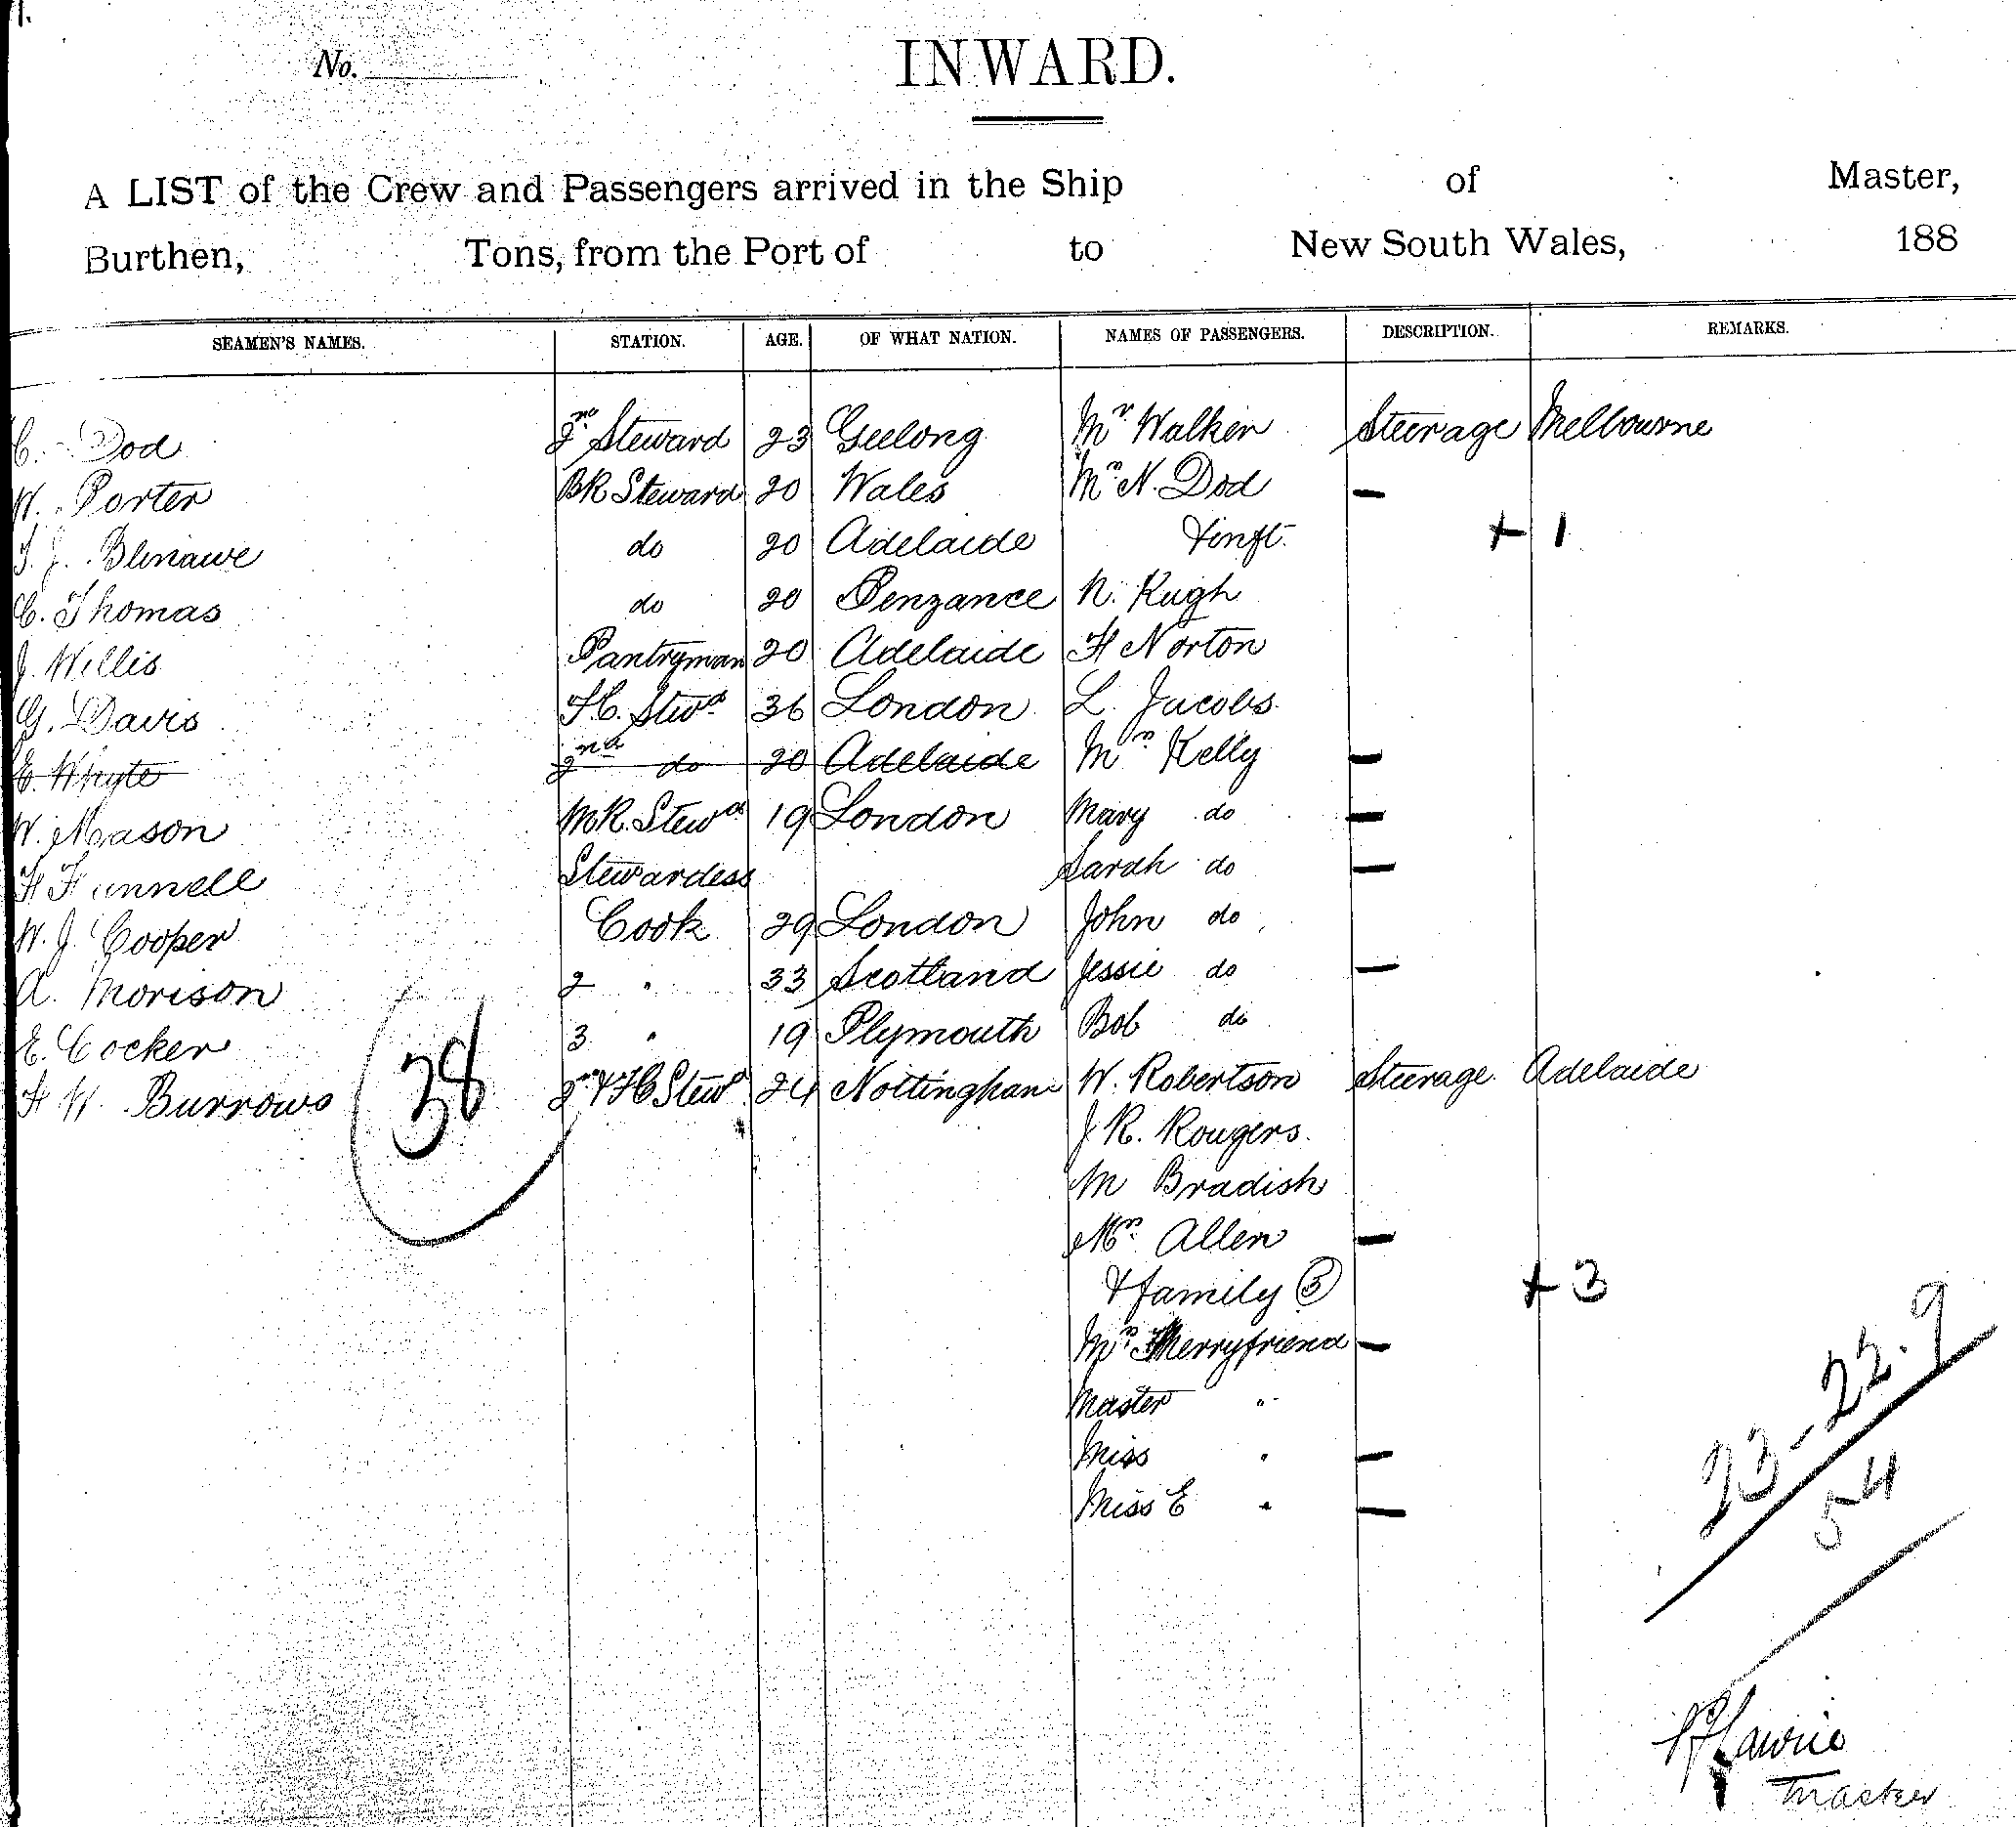 No.
INWARD.
A LIST of the Crew and Passengers arrived in the Ship of Master,
Burthen, Tons, from the Port of to New South Wales, 188
SEAMEN'S NAMES. STATION. AGE. OF WHAT NATION. NAMES OF PASSENGERS. DESCRIPTION. REMARKS.
C. Dod 2nd Steward 23 Geelong Mr Walker Steerage Melbourne
W. Porter BR Steward 20 Wales Mrs N. Dod —
T. J. do 20 Adelaide & inft. + 1
C. Thomas do 20 Penzance N. Kugh
J. Willis Pantryman 20 Adelaide H Norton
G. Davis F.C. Stewd 36 London L. Jacobs
E. Whyte 2nd do 20 Adelaide Mrs Kelly —
W. Mason MR. Stewd 19 London Mary do —
H Funnell Stewardess Sarah do —
W. J. Cooper Cook 29 London John do
A. Morison 2 " 33 Scotland Jessie do —
E. Cocker 3 " 19 Plymouth Bob do
H W. Burrows 2nd F C Stewd 24 Nottingham W. Robertson Steerage Adelaide
38
J R. Rougers.
M Bradish
Mrs Allen —
& family 3 + 3
Mrs Merryfriend —
Master "
Miss " —
Miss E " —
23-22.9
54
Lawrie
Master